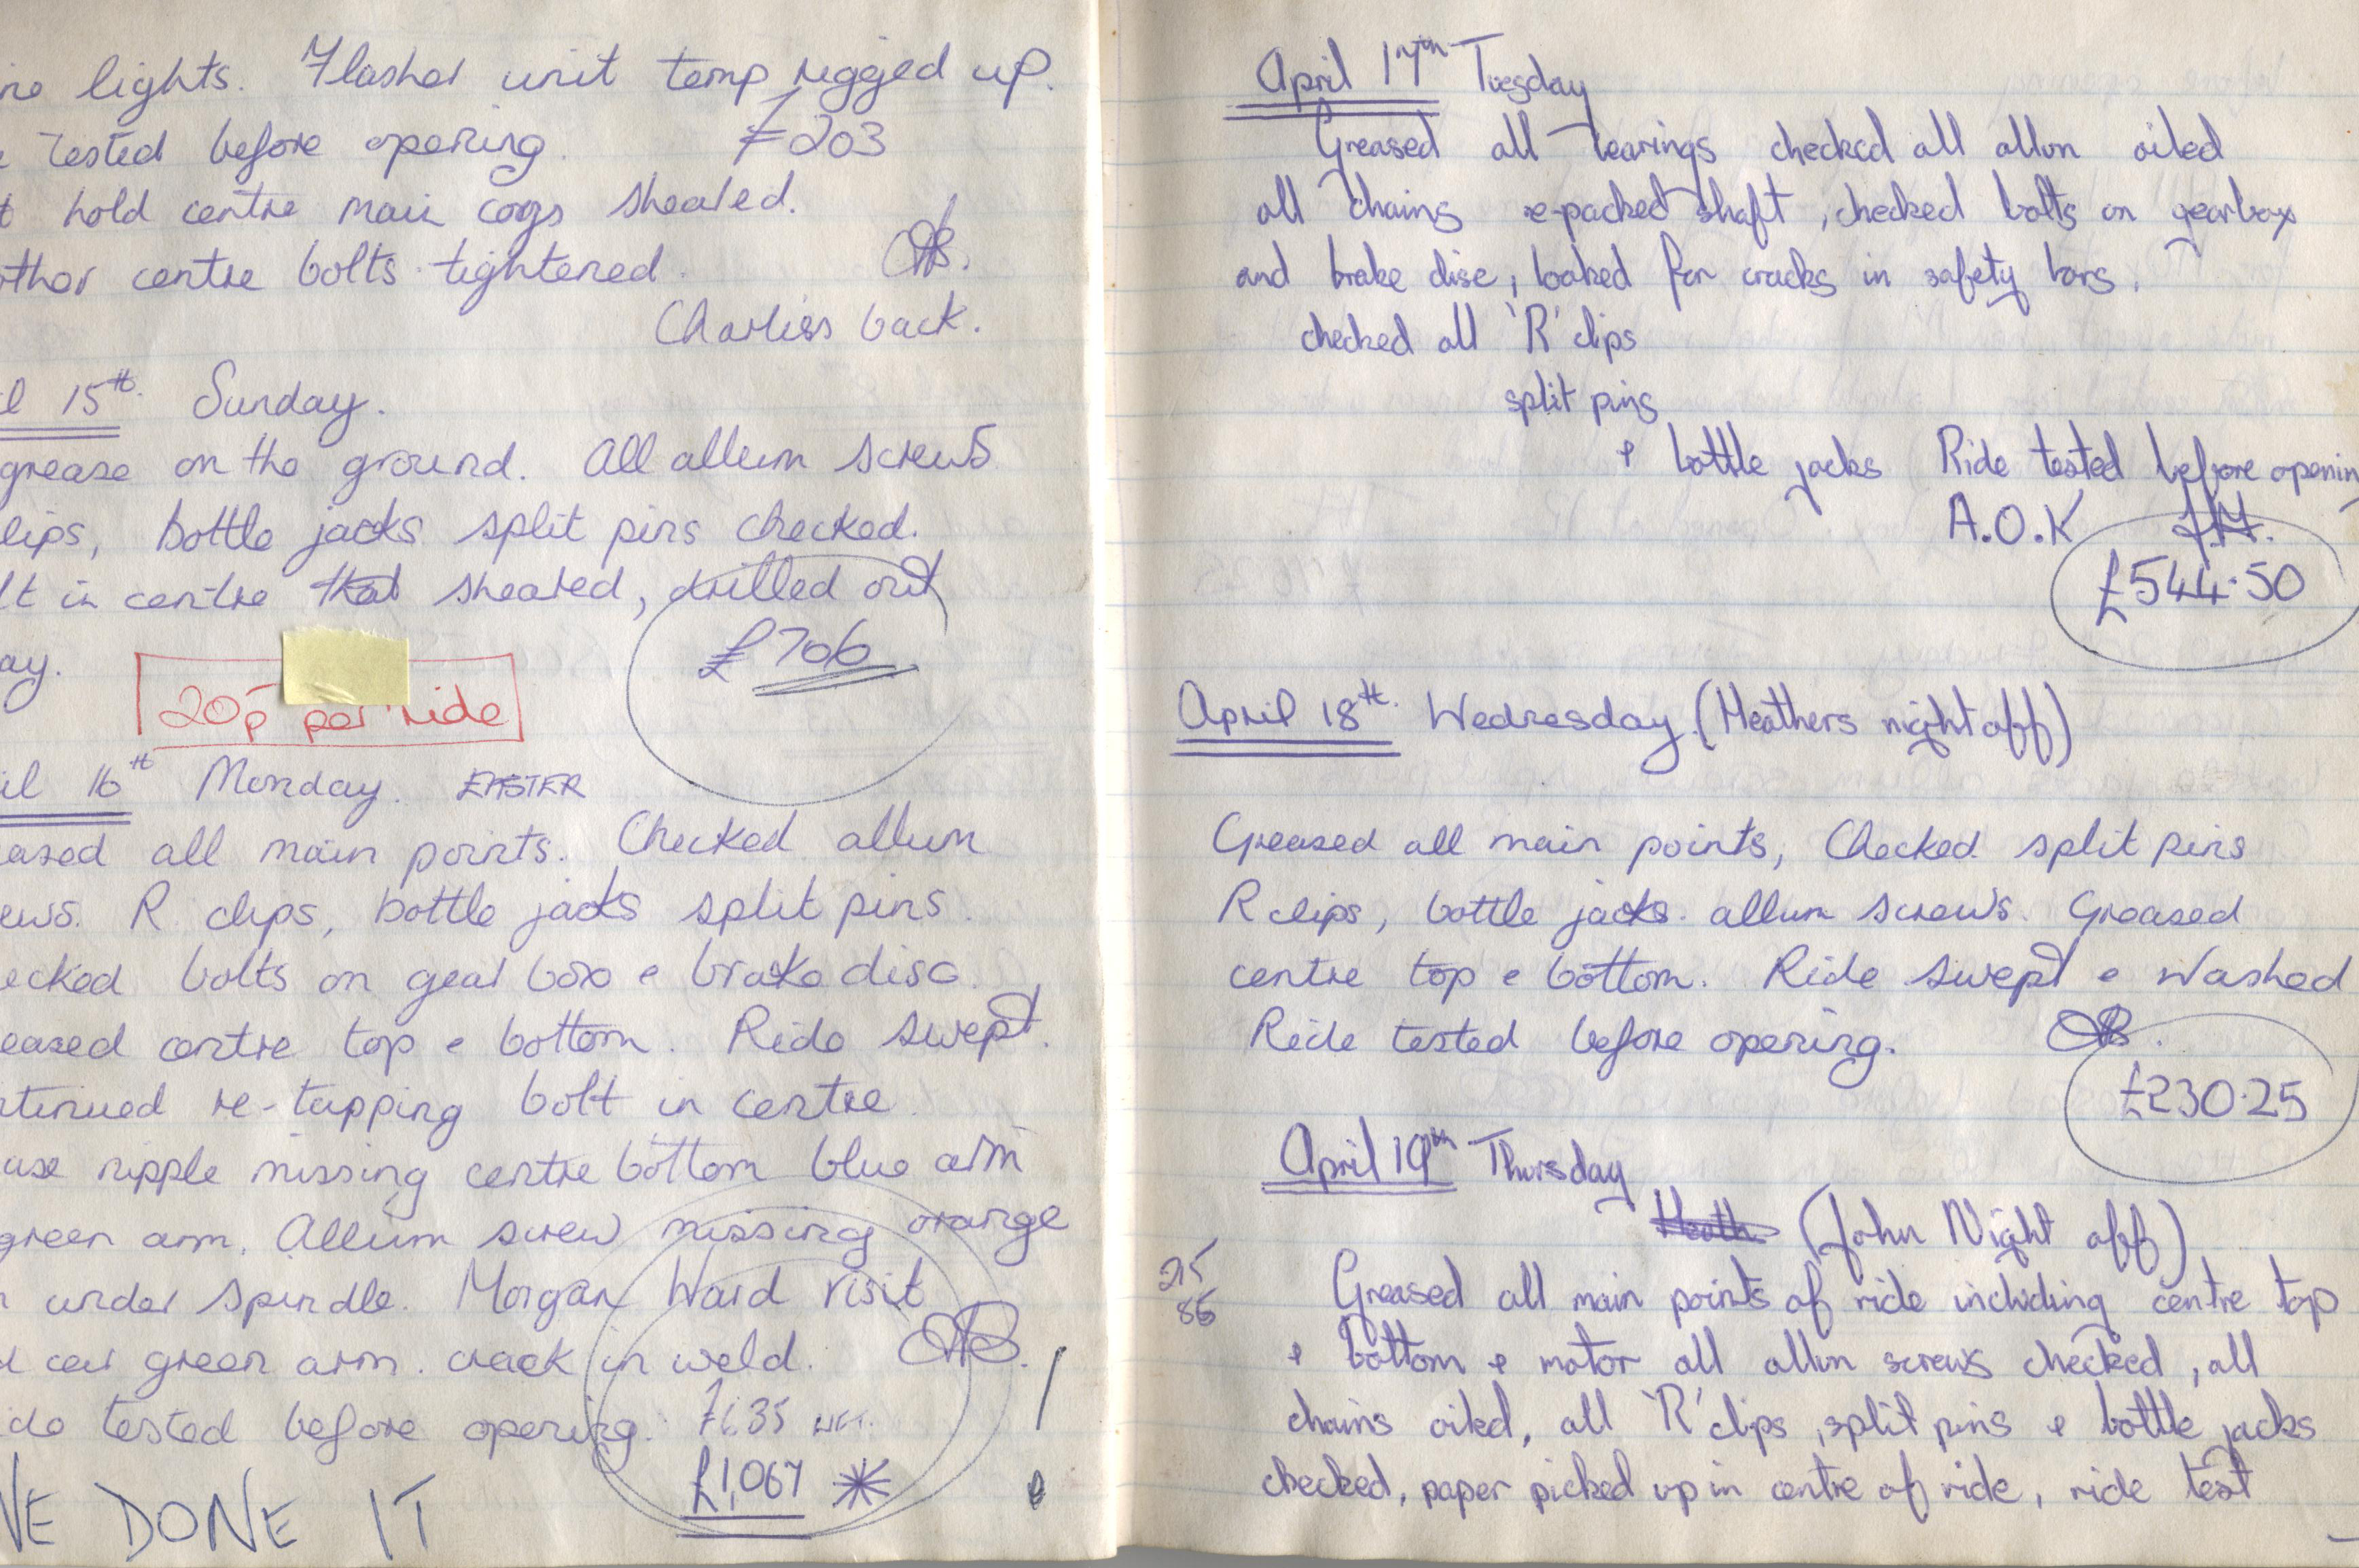 lights. Flasher unit temp rigged up.
Tested before opening. £203
hold centre main cogs sheared.
other centre bolts tightened.
Charlies back.
15th. Sunday.
grease on the ground. All allum screws
lips, bottle jacks split pins checked.
in centre that sheared, drilled out
ay.
£706
20p per ride
il 16th Monday. EASTER
eased all main points. Checked allum
ews. R clips, bottle jacks split pins.
ecked bolts on gear box & brake disc.
eased centre top & bottom. Ride swept.
ntinued re-tapping bolt in centre.
ase nipple missing centre bottom blue arm
green arm. Allum screw missing orange
under spindle. Morgan Ward visit
car green arm. crack in weld.
ide tested before opening.
£1,067 *
VE DONE IT !
April 17th Tuesday
Greased all bearings checked all allun oiled
all chains re-packed shaft, checked bolts on gearbox
and brake disc, looked for cracks in safety bars.
checked all 'R' clips
split pins
& bottle jacks Ride tested before openin
A.O.K J.H.
£544.50
April 18th. Wednesday. (Heathers night off)
Greased all main points, Checked split pins
R clips, bottle jacks. allum screws. Greased
centre top & bottom. Ride swept & washed
Ride tested before opening.
£230.25
April 19th Thursday
Heath (John Night off)
Greased all main points of ride including centre top
& bottom & motor all allun screws checked, all
chains oiled, all 'R' clips, split pins & bottle jacks
checked, paper picked up in centre of ride, ride test